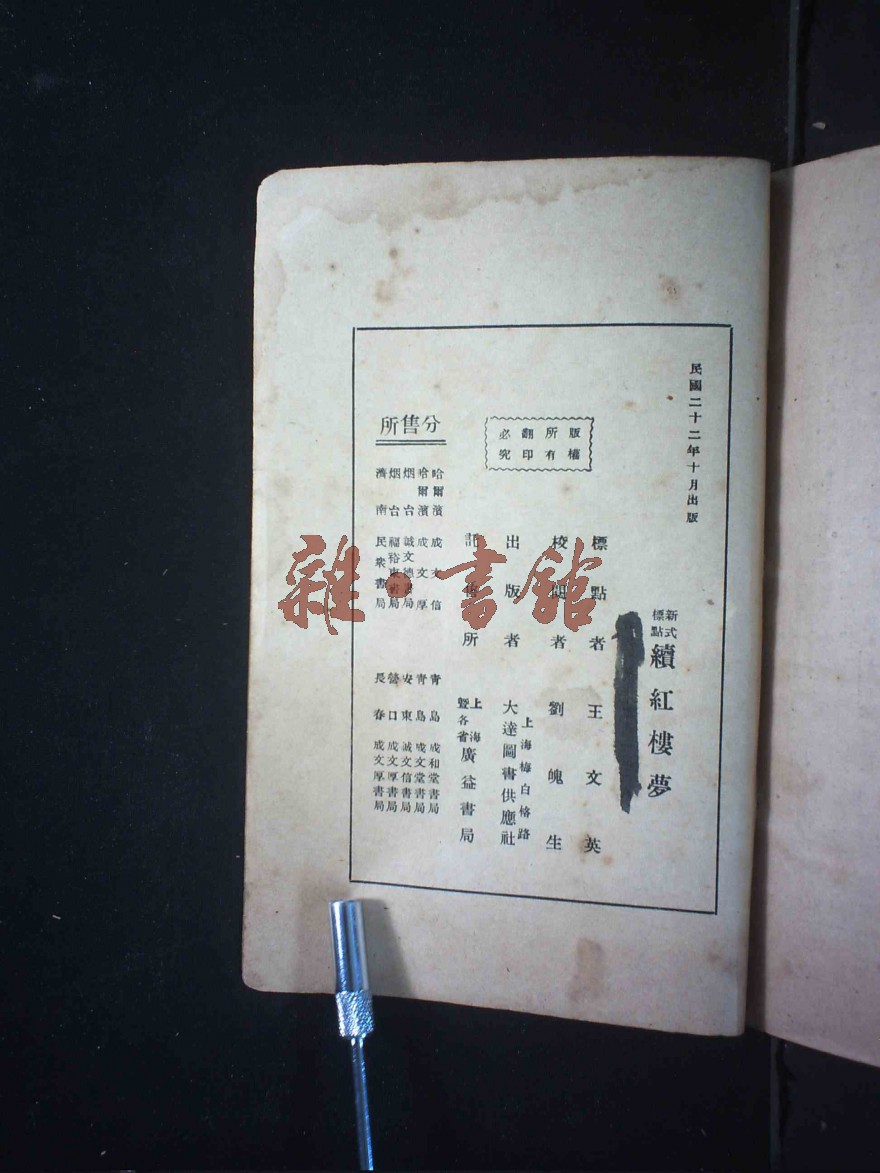 民國二十二年十月出版
新式標點 續紅樓夢
版權所有
翻印必究
標點者 王文英
校閱者 劉魄生
出版者 上海梅白格路 大達圖書供應社
託售所 上海暨各省 廣益書局
分售所
哈爾濱 成文信
哈爾濱 成文厚
烟台 誠文德書局
烟台 福裕東書局
濟南 民衆書局
青島 成和堂書局
青島 成文堂書局
安東 誠文信書局
營口 成文厚書局
長春 成文厚書局
雜·書館